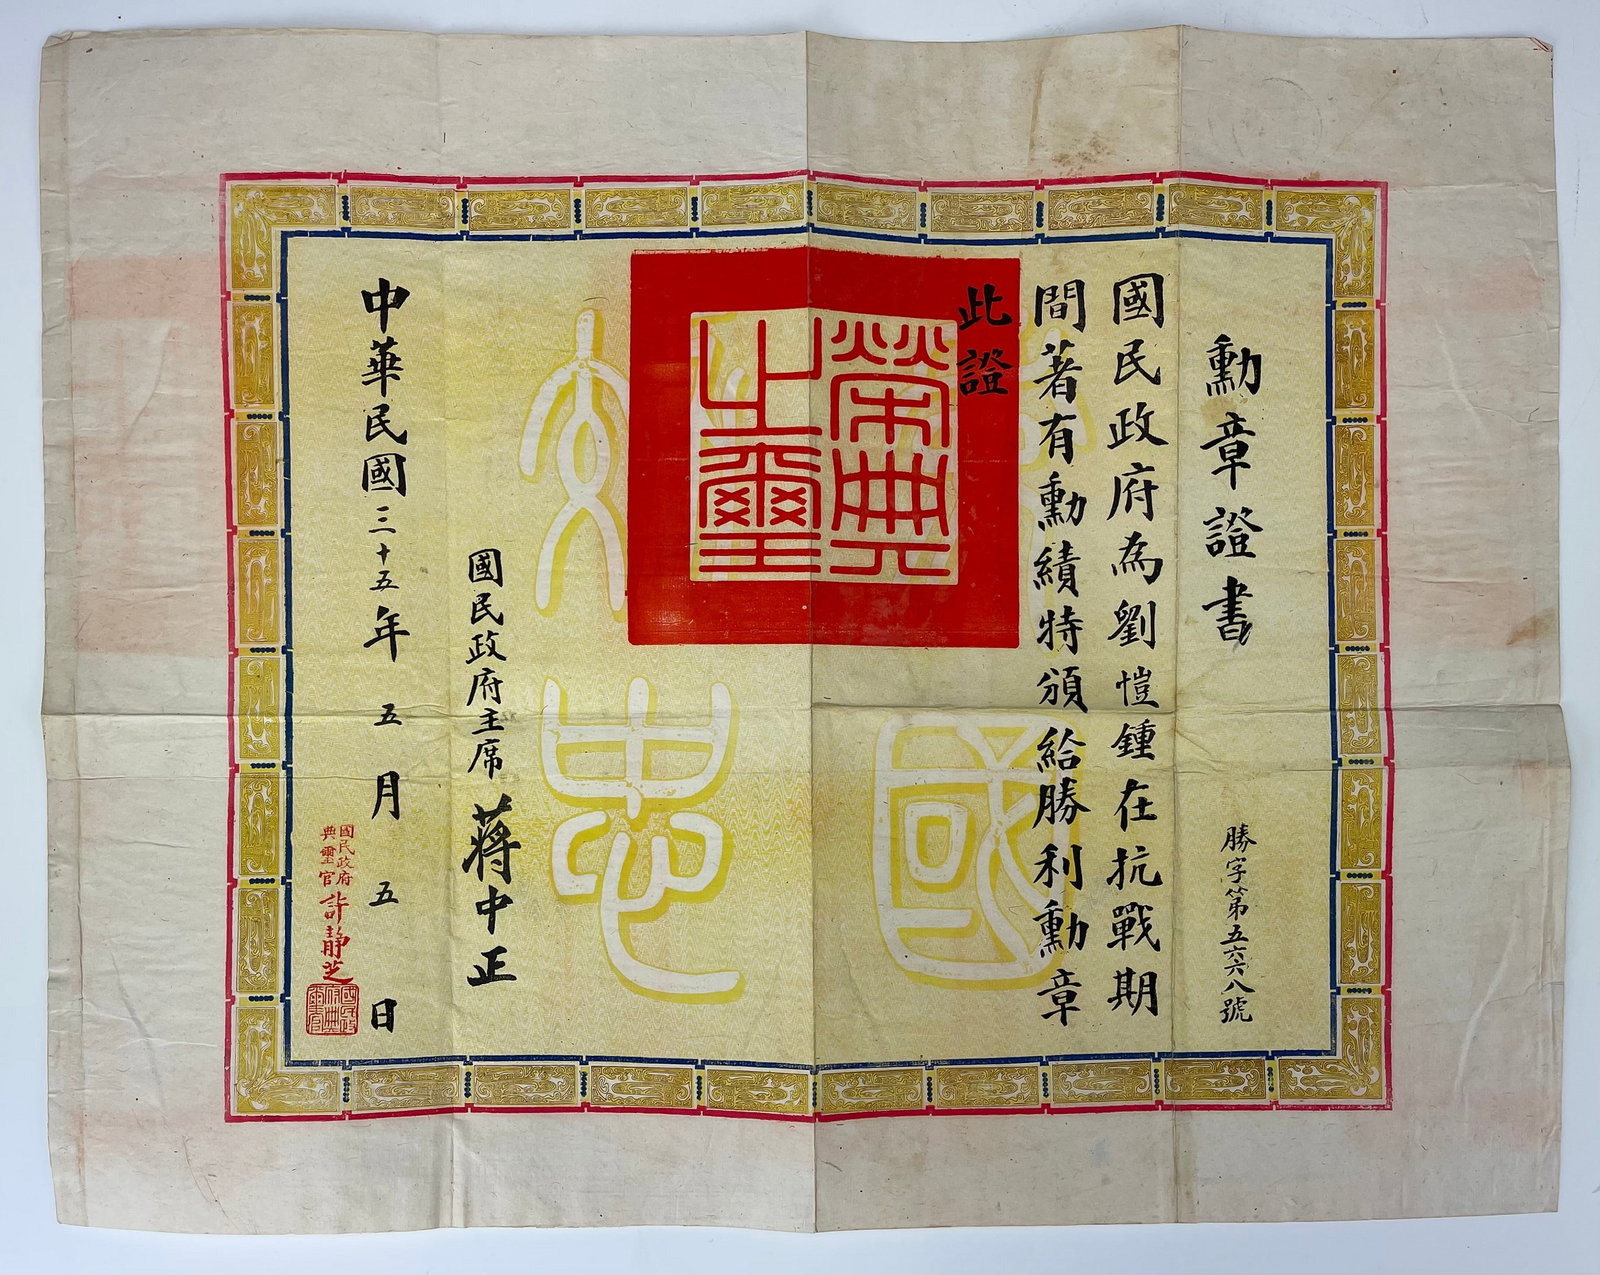 勳章證書
勝字第五六六八號
國民政府為劉愷鍾在抗戰期
間著有勳績特頒給勝利勳章
此證
榮典
之璽
國民政府主席 蔣中正
中華民國三十五年五月五日
國民政府
典璽官 許靜芝
國民政
府典
璽官
忠
國